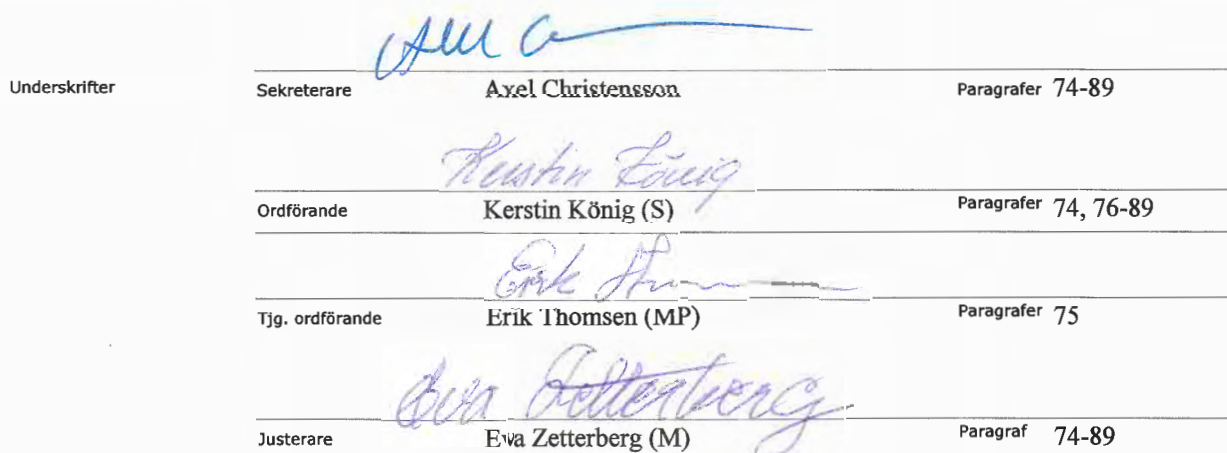 Underskrifter Sekreterare Axel Christensson Paragrafer 74-89
Kerstin König
Ordförande Kerstin König (S) Paragrafer 74, 76-89
Erik Thomsen
Tjg. ordförande Erik Thomsen (MP) Paragrafer 75
Ewa Zetterberg
Justerare Ewa Zetterberg (M) Paragraf 74-89